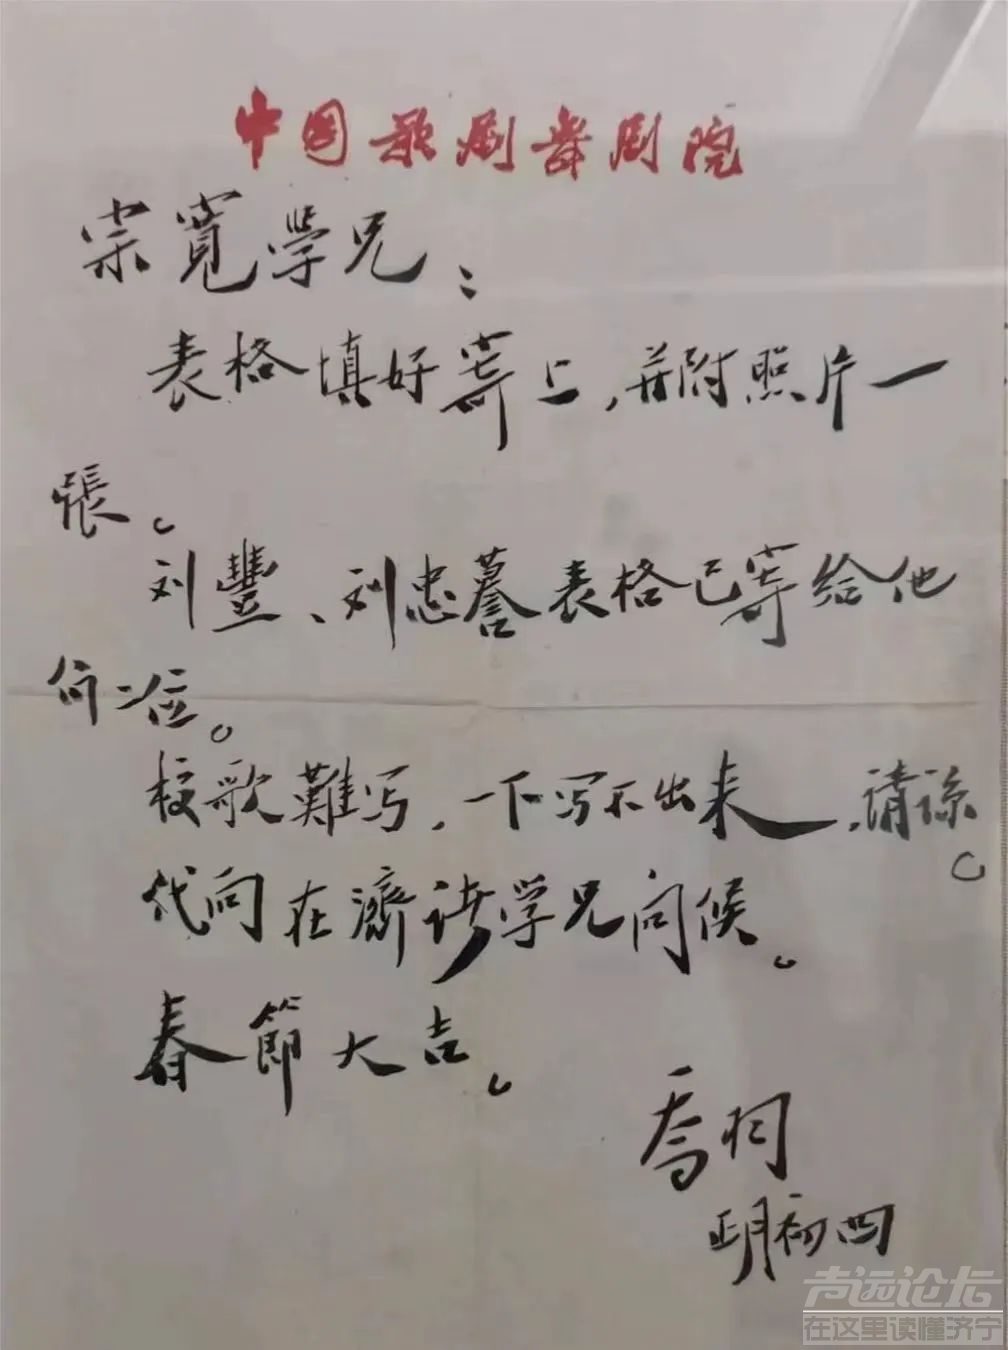 中国歌剧舞剧院
宗寬學兄：
表格填好寄上，并附照片一
張。
刘豐、刘忠謩表格已寄给他
们二位。
校歌難写，一下写不出来，请谅。
代向在濟诸学兄问候。
春節大吉。
乔羽
正月初四
声远论坛
在这里读懂济宁